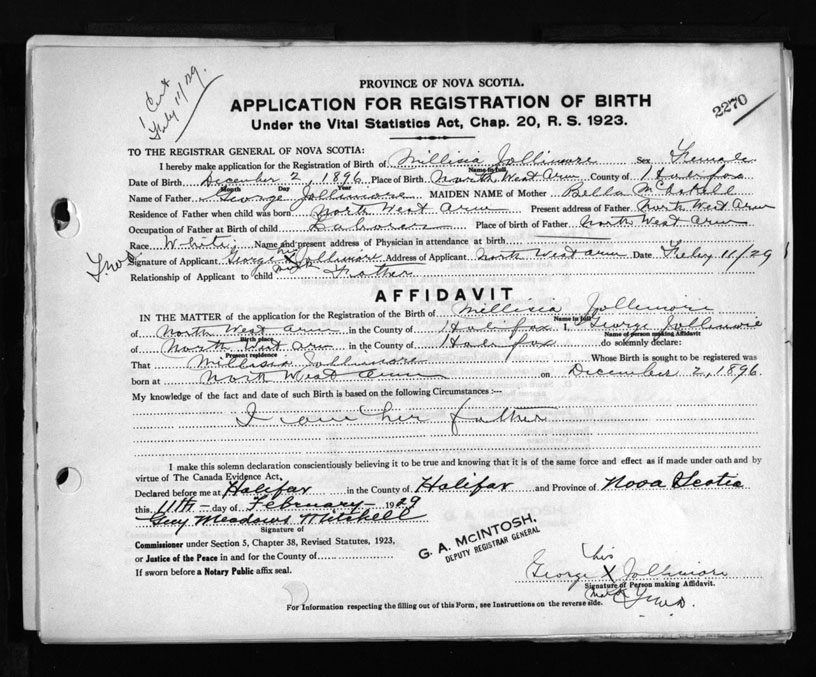 1 Cert
Feby 11/29.
PROVINCE OF NOVA SCOTIA.
APPLICATION FOR REGISTRATION OF BIRTH
2270
Under the Vital Statistics Act, Chap. 20, R. S. 1923.
TO THE REGISTRAR GENERAL OF NOVA SCOTIA:
I hereby make application for the Registration of Birth of Millisia Jollimore Sex Female
Name in full
Date of Birth December 2, 1896 Place of Birth North West Arm County of Halifax
Month Day Year
Name of Father George Jollimore MAIDEN NAME of Mother Bella
Residence of Father when child was born North West Arm Present address of Father North West Arm
Occupation of Father at Birth of child Laborer Place of birth of Father North West Arm
Race White Name and present address of Physician in attendance at birth
his
Signature of Applicant George X Jollimore Address of Applicant North West Arm Date Feby 11/29
mark
Relationship of Applicant to child Father
AFFIDAVIT
IN THE MATTER of the application for Registration of the Birth of Millisia Jollimore
Name in full
of North West Arm in the County of Halifax I, George Jollimore
Birth place Name of person making Affidavit
of North West Arm in the County of Halifax do solemnly declare:
Present residence
That Millisia Jollimore Whose Birth is sought to be registered was
born at North West Arm on December 2, 1896.
My knowledge of the fact and date of such Birth is based on the following Circumstances :—
I am her father
I make this solemn declaration conscientiously believing it to be true and knowing that it is of the same force and effect as if made under oath and by
virtue of The Canada Evidence Act,
Declared before me at Halifax in the County of Halifax and Province of Nova Scotia
this 11th day of February 1929
Guy Meadows Mitchell
Signature of
Commissioner under Section 5, Chapter 38, Revised Statutes, 1923,
or Justice of the Peace in and for the County of
If sworn before a Notary Public affix seal.
G. A. McINTOSH,
DEPUTY REGISTRAR GENERAL
his
George X Jollimore
Signature of Person making Affidavit.
mark
For Information respecting the filling out of this Form, see Instructions on the reverse side.